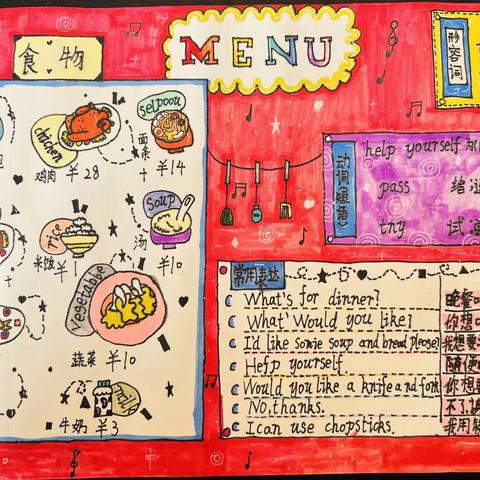 食物
MENU
形容词
chicken
鸡肉 ¥28
面条
¥14
rice
米饭 ¥1
soup
汤 ¥10
vegetable
蔬菜 ¥10
牛奶 ¥3
动词(短语)
help yourself
pass
tny
常用表达
What's for dinner?
What' Would you like?
I'd like some soup and bread please!
Hefp yourself.
Would you like a knife and fork
No, thanks.
I can use chopsticks.
晚餐
你想
我想要
随便
你想要
不了,
我用